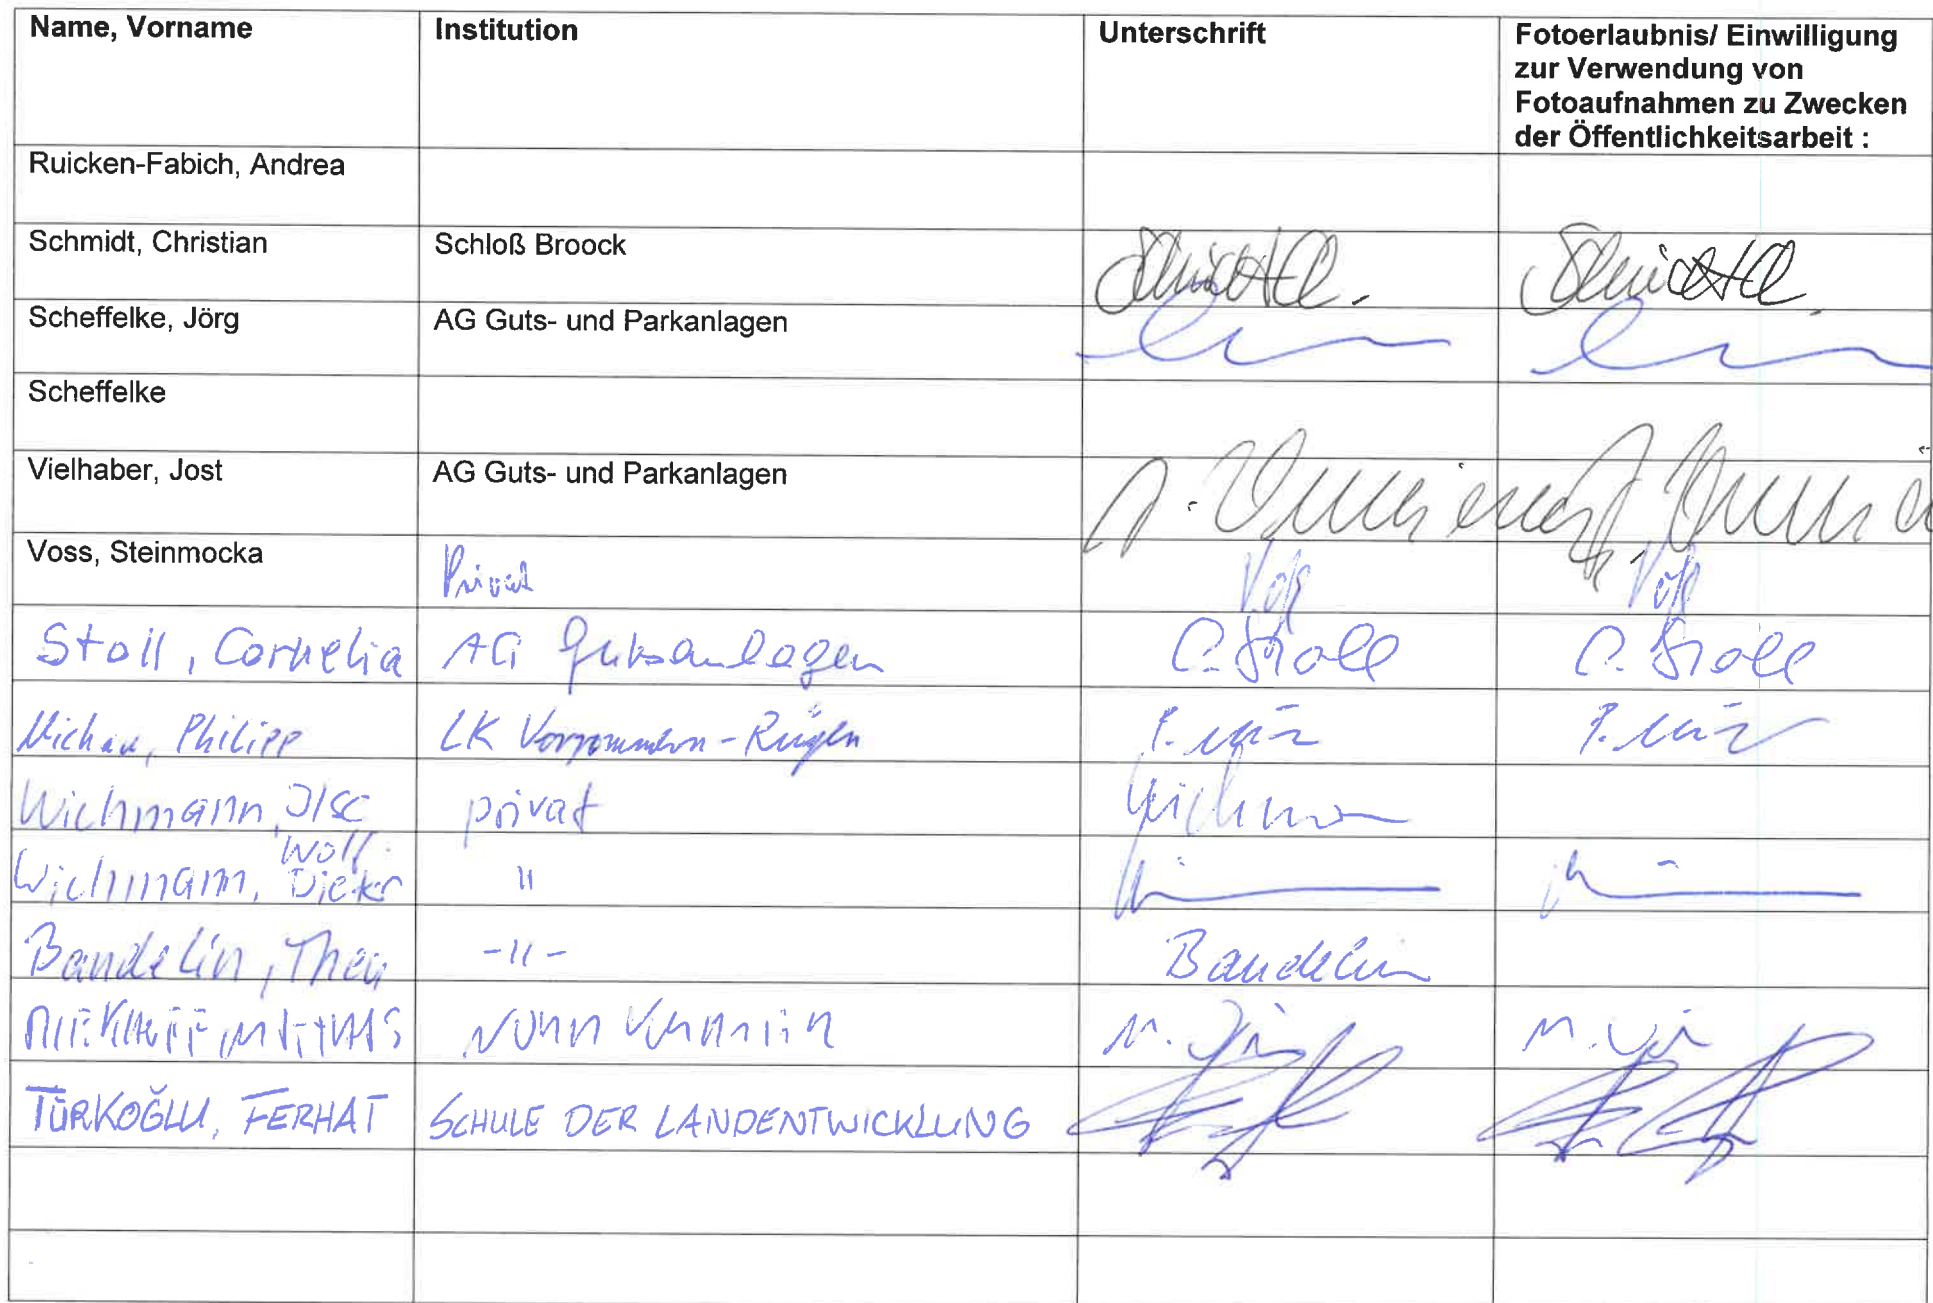 Name, Vorname Institution Unterschrift Fotoerlaubnis/ Einwilligung
zur Verwendung von
Fotoaufnahmen zu Zwecken
der Öffentlichkeitsarbeit :
Ruicken-Fabich, Andrea
Schmidt, Christian Schloß Broock
Scheffelke, Jörg AG Guts- und Parkanlagen
Scheffelke
Vielhaber, Jost AG Guts- und Parkanlagen
Voss, Steinmocka Privat Voß Voß
Stoll, Cornelia AG Gutsanlagen C. Stoll C. Stoll
Michau, Philipp LK Vorpommern-Rügen
Wichmann, privat
Wolf
Wichmann, "
Bandelin, -"- Bandelin
TÜRKOĞLU, FERHAT SCHULE DER LANDENTWICKLUNG